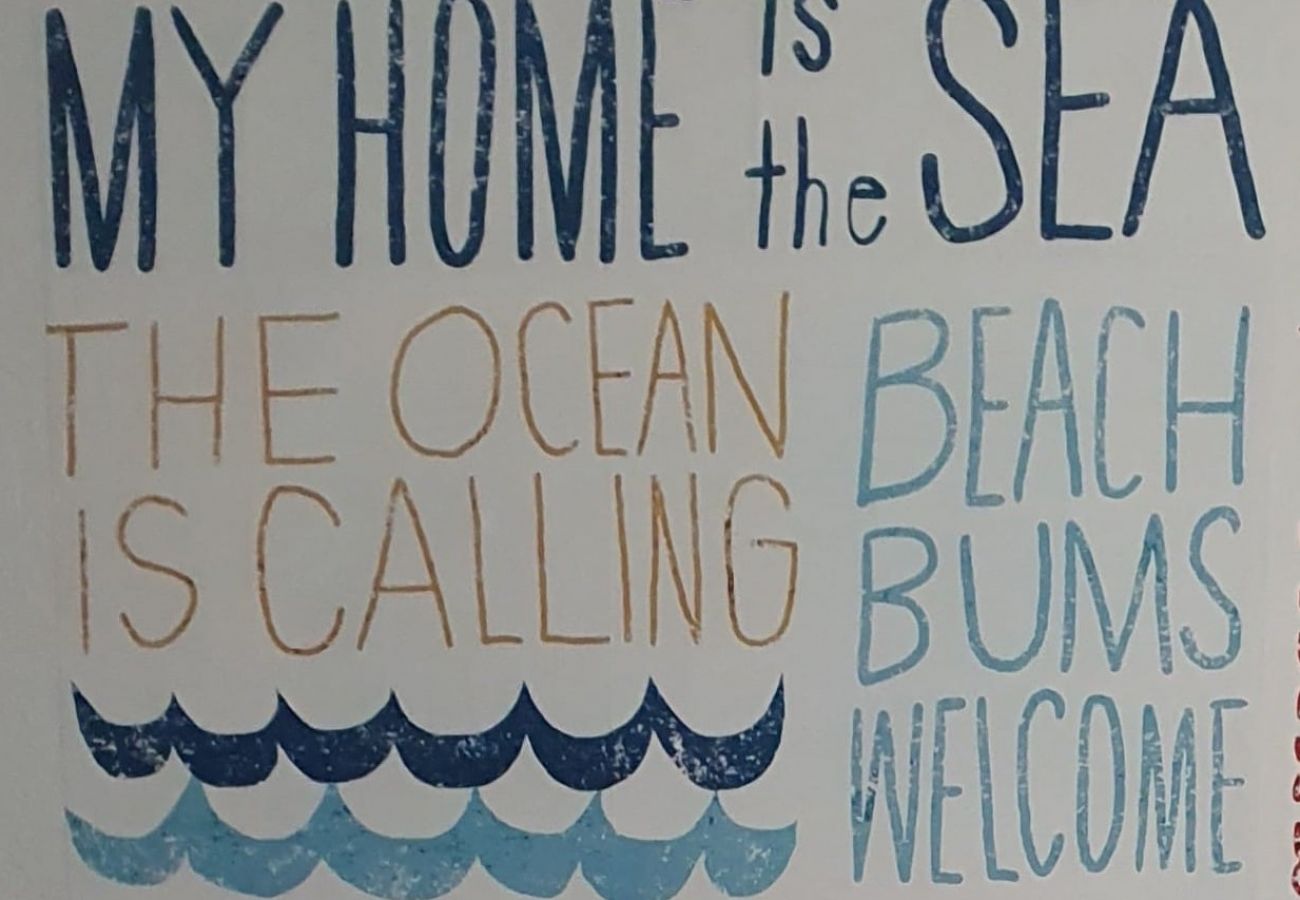 MY HOME is the SEA
THE OCEAN
IS CALLING
BEACH
BUMS
WELCOME